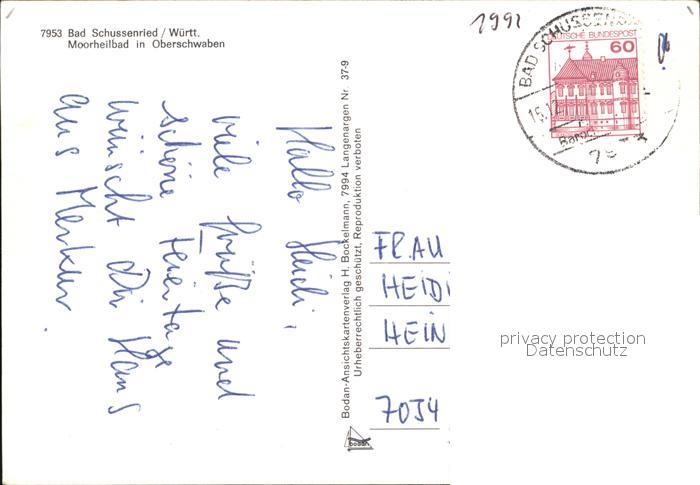 7953 Bad Schussenried / Württ.
Moorheilbad in Oberschwaben
1991
DEUTSCHE BUNDESPOST
60
BAD SCHUSSENRIED
15.12
Hallo Heidi,
viele Grüße und
schöne Feiertage
wünscht Dir Hans
aus Merklin.
Bodan-Ansichtskartenverlag H. Bockelmann, 7994 Langenargen Nr. 37-9
Urheberrechtlich geschützt, Reproduktion verboten
bodan
FRAU
HEIDI
HEIN
7054
privacy protection
Datenschutz